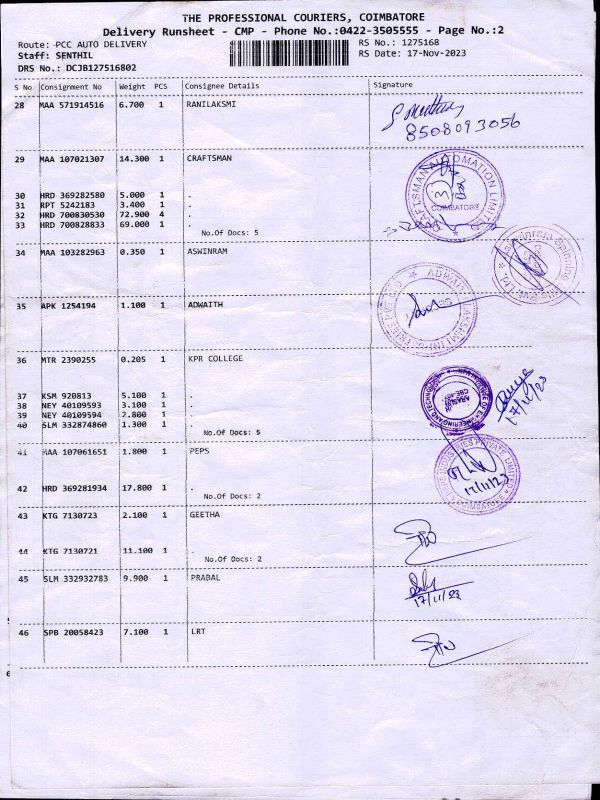 THE PROFESSIONAL COURIERS, COIMBATORE
Delivery Runsheet - CMP - Phone No.:0422-3505555 - Page No.:2
Route: PCC AUTO DELIVERY RS No.: 1275168
Staff: SENTHIL RS Date: 17-Nov-2023
DRS No.: DCJB127516802
S No Consignment No Weight PCS Consignee Details Signature
28 MAA 571914516 6.700 1 RANILAKSMI
8508093056
29 MAA 107021307 14.300 1 CRAFTSMAN
CRAFTSMAN AUTOMATION LIMITED
COIMBATORE
30 HRD 369282580 5.000 1 .
31 RPT 5242183 3.400 1 .
32 HRD 700830530 72.900 4 .
33 HRD 700828833 69.000 1 .
No.Of Docs: 5
34 MAA 103282963 0.350 1 ASWINRAM
35 APK 1254194 1.100 1 ADWAITH
36 MTR 2390255 0.205 1 KPR COLLEGE
37 KSM 920813 5.100 1 .
38 NEY 40109593 3.100 1 .
39 NEY 40109594 2.800 1 .
40 SLM 332874860 1.300 1 .
No.Of Docs: 5
17/11/23
41 MAA 107061651 1.800 1 PEPS
17/11/23
42 HRD 369281934 17.800 1 .
No.Of Docs: 2
43 KTG 7130723 2.100 1 GEETHA
44 KTG 7130721 11.100 1 .
No.Of Docs: 2
45 SLM 332932783 9.900 1 PRABAL
17/11/23
46 SPB 20058423 7.100 1 LRT